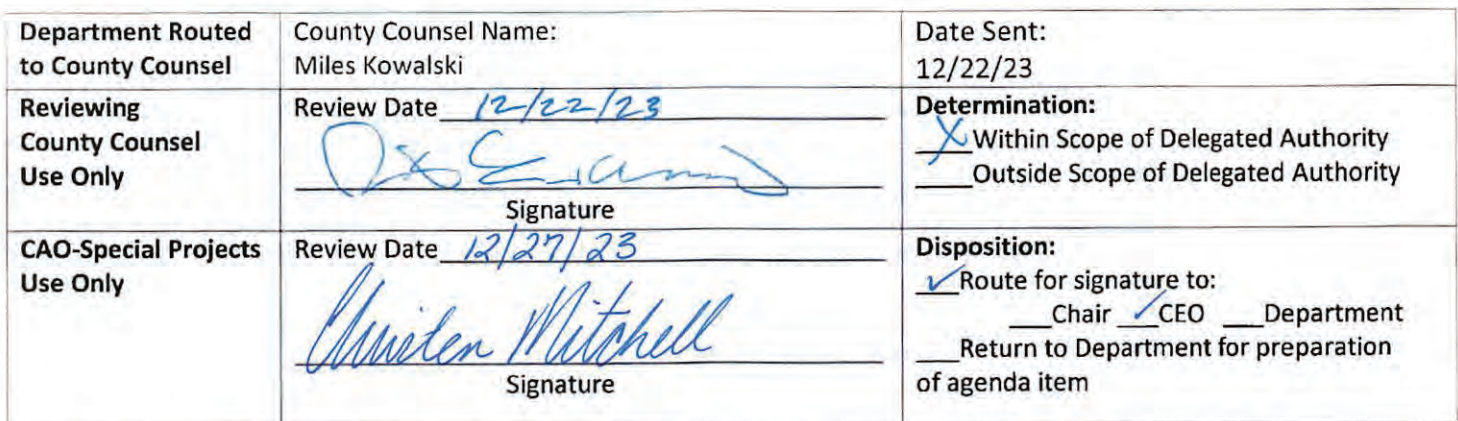 Department Routed
to County Counsel
County Counsel Name:
Miles Kowalski
Date Sent:
12/22/23
Reviewing
County Counsel
Use Only
Review Date 12/22/23
Signature
Determination:
X Within Scope of Delegated Authority
___Outside Scope of Delegated Authority
CAO-Special Projects
Use Only
Review Date 12/27/23
Mitchell
Signature
Disposition:
✓Route for signature to:
___Chair ✓CEO ___Department
___Return to Department for preparation
of agenda item